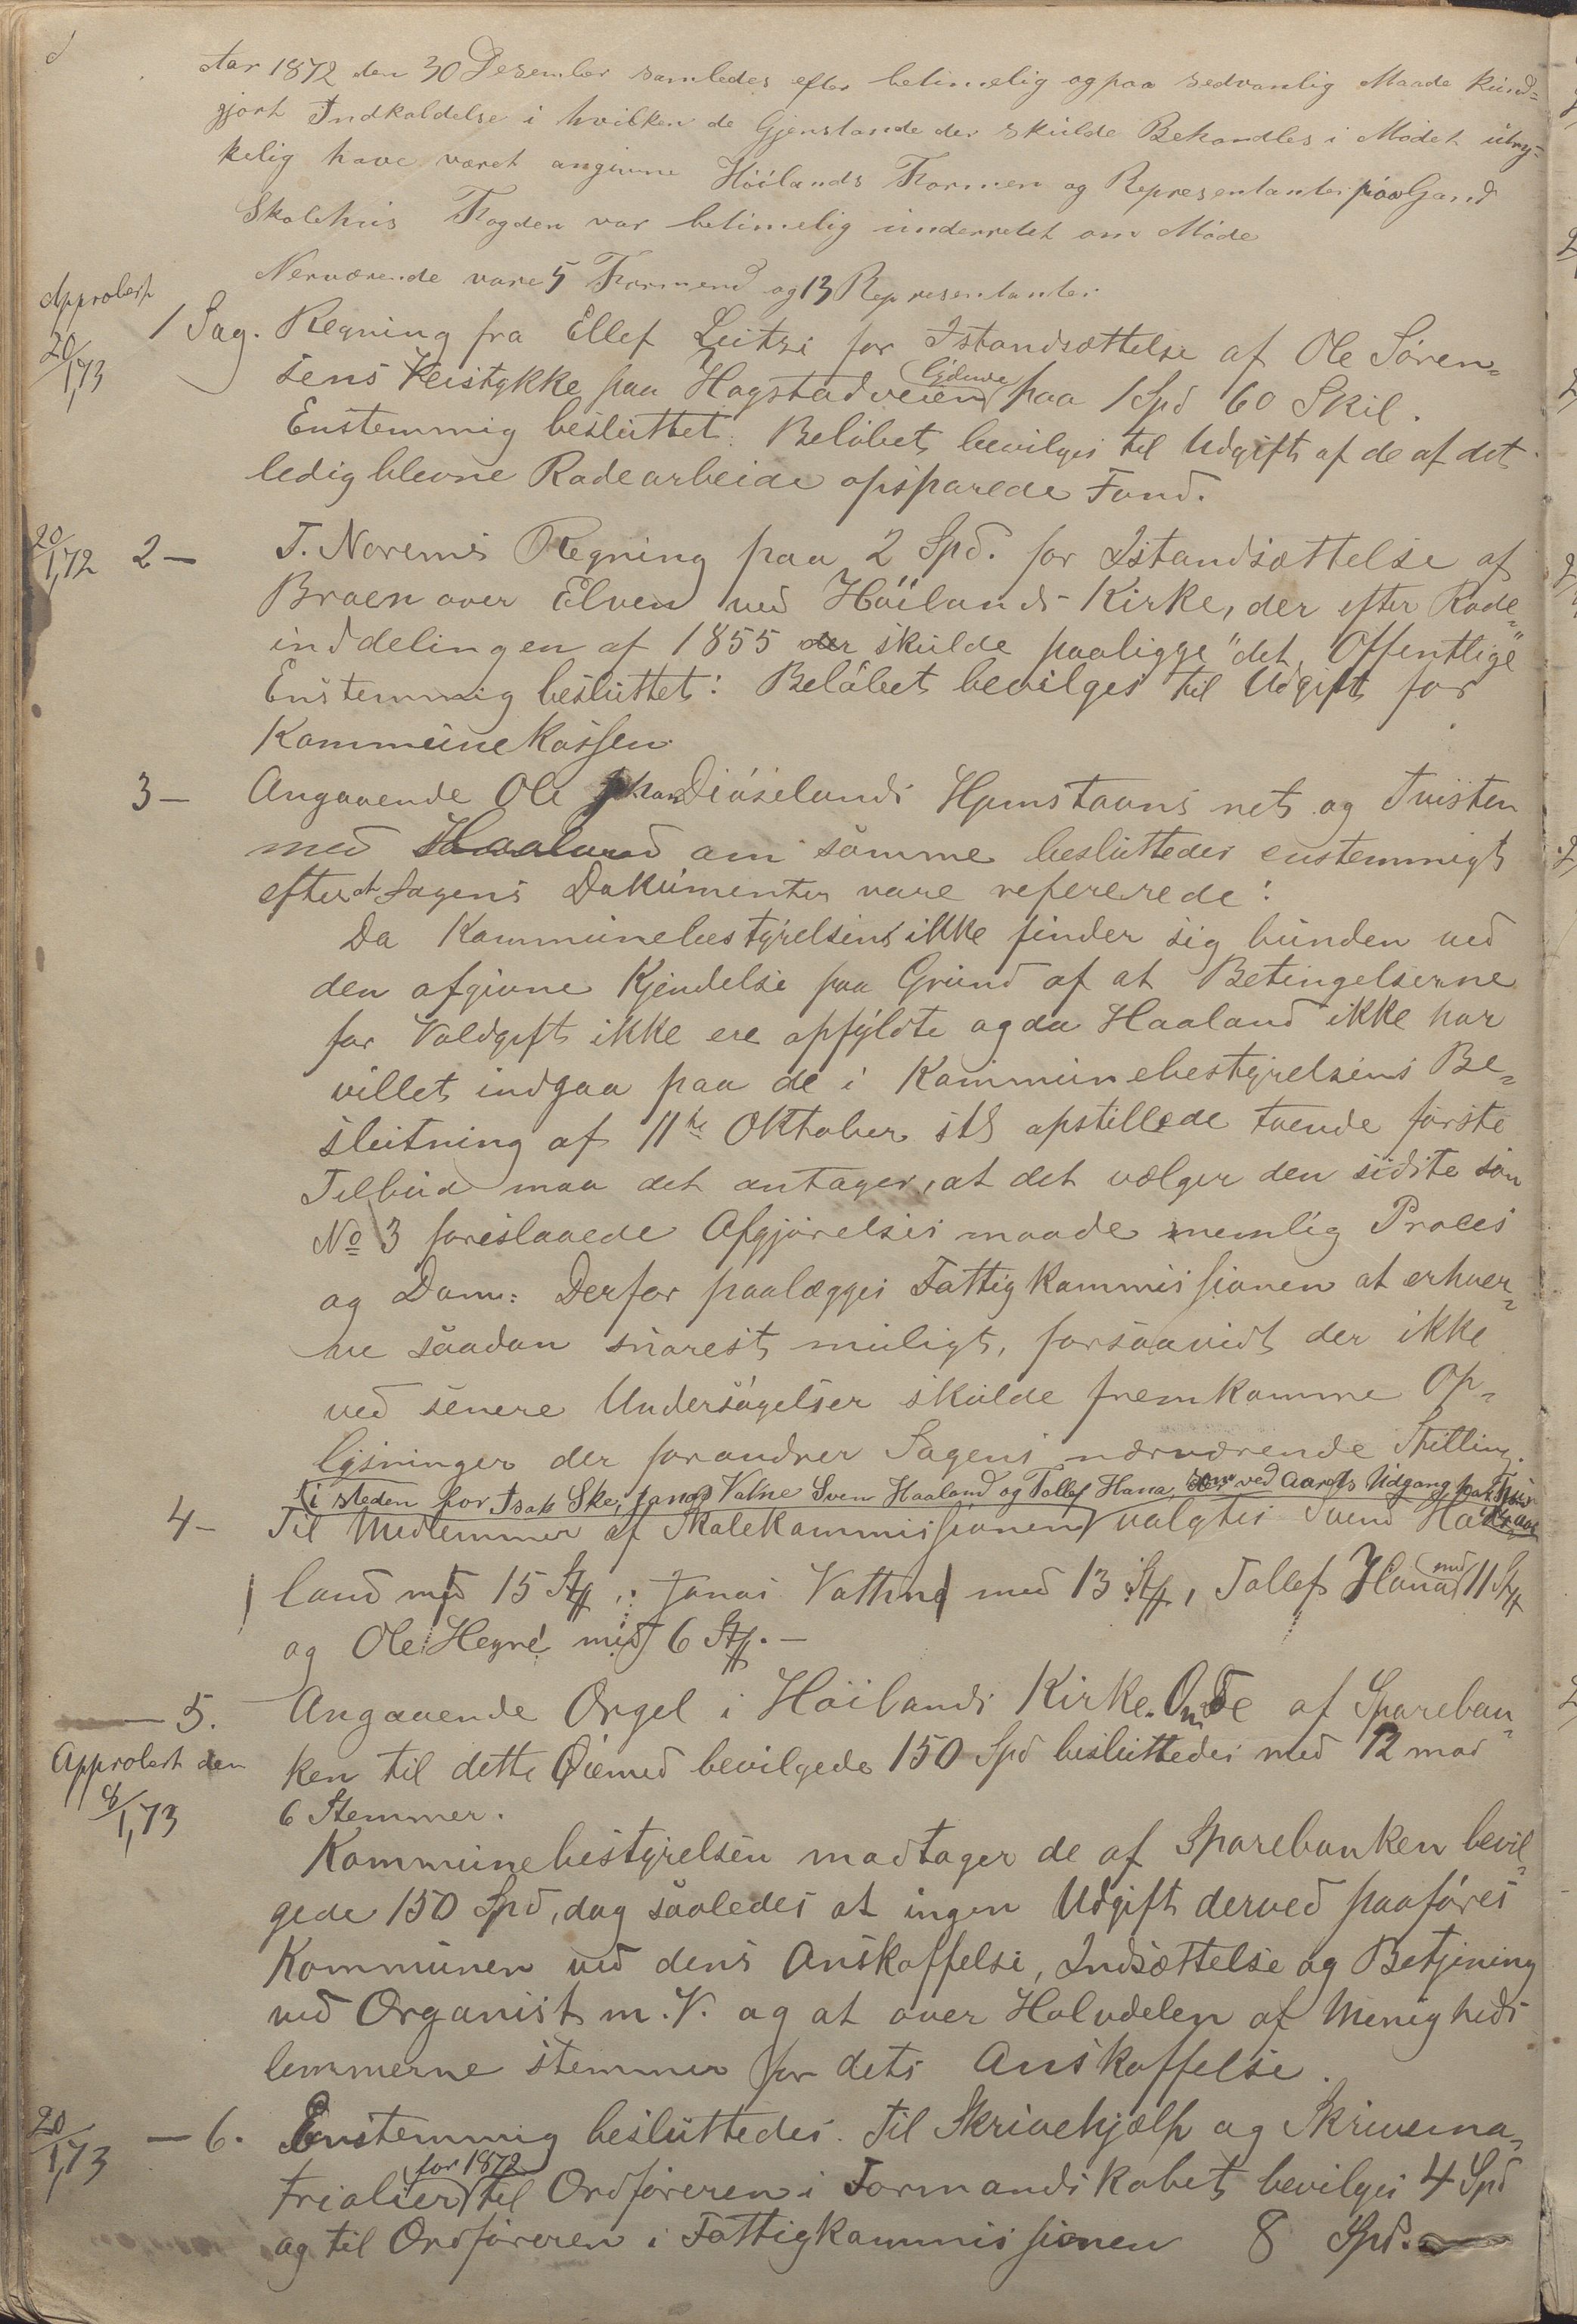 Aar 1872 den 30 Desember samledes efter betimelig og paa sedvanlig Maade kund=
gjort Indkaldelse i hvilken de Gjenstande der skulde Behandles i Mødet udtry=
kelig have været angivne Höilands Formen og Representanter paa Gand
Skolehus Fogden var betimelig underretet om Møde
Nerværende vare 5 Formend og 13 Representanter
Approbert
20/1,73
1 Sag. Regning fra Ellef Leitzi for Istandsættelse af Ole Sören=
sens Veistykke paa Hogstadveien lydende paa 1 Spd 60 Skil.
Enstemmig besluttet: Belöbet bevilges til Udgift af de af det
ledig blevne Rodearbeide opsparede Fond.
20/1,72
2 — T. Norems Regning paa 2 Spd. for Istandsættelse af
Broen over Elven ved Höilands Kirke, der efter Rode=
inddelingen af 1855 der skulde paaligge "det Offentlige"
Enstemmig besluttet: Belöbet bevilges til Udgift for
Kommunekassen.
3 — Angaaende Ole Diúselands Hjemstavns ret og Tvisten
med Haaland om samme besluttedes enstemmigt
efterat Sagens Dokumenter vare refererede:
Da Kommunebestyrelsens ikke finder sig bunden ved
den afgivne Kjendelse paa Grund af at Betingelserne
for Voldgift ikke ere opfyldte og da Haaland ikke har
villet indgaa paa de i Kommunebestyrelsens Be=
slutning af 11te Oktober stl opstillede tvende första
Tilbud maa det antages, at det vælger den sidste som
No 3 foreslaaede Afgjörelses maade nemlig Proces
og Dom: Derfor paalægges Fattigkommissionen at erhver=
ve saadan snarest muligt, forsaavidt der ikke
ved senere Undersögelser skulde fremkomme Op=
lysninger der forandrer Sagens nærværende Stilling.
i steden for Isak Ske, Jonas Vatne Sven Haaland og Tollef Hana, som ved Aarets Udgang
4 — Til Medlemmer af Skolekommissionen valgtes Svend Haa
land med 15 St; Jonas Vatne med 13 St, Tollef Hana med 11 St
og Ole Hegre med 6 St. —
5. Angaaende Orgel i Höilands Kirke. De af Spareban=
Approbert den
8/1,73
ken til dette Øiemed bevilgede 150 Spd besluttedes med 12 mod
6 Stemmer.
Kommunebestyrelsen modtager de af Sparebanken bevil=
gede 150 Spd, dog saaledes at ingen Udgift derved paaföres
Kommunen ved dens Anskaffelse, Indsættelse og Betjening
ved Organist m. V. og at over Halvdelen af Menigheds
lemmerne stemmer for dets Anskaffelse.
20/1,73
— 6. Enstemmig besluttedes. Til Skrivehjælp og Skrivema=
trialier for 1872 til Ordföreren i Formandskabet bevilges 4 Spd
og til Ordföreren i Fattigkommissionen 8 Spd.